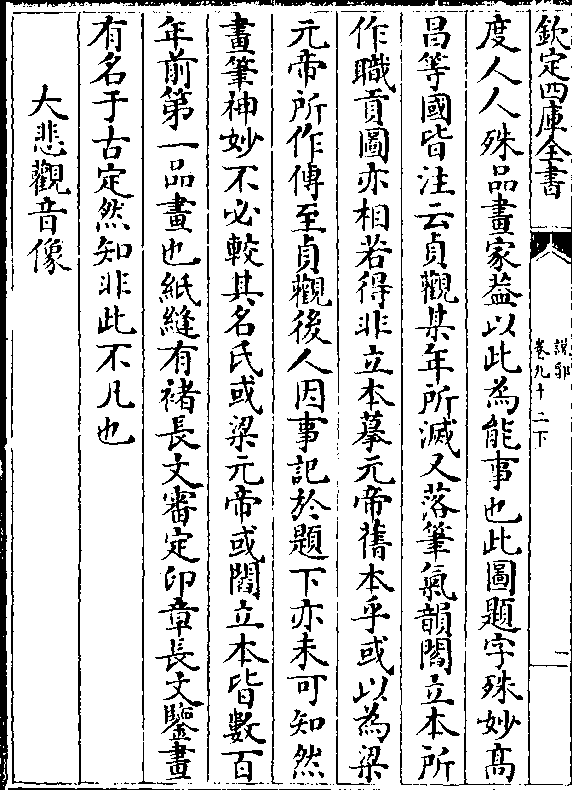 欽定四庫全書
說郛
卷九十二下
二
度人人殊品畫家益以此為能事也此圖題字殊妙髙
昌等國皆注云貞觀某年所滅又落筆氣韻閻立本所
作職貢圖亦相若得非立本摹元帝舊本乎或以為梁
元帝所作傳至貞觀後人因事記於題下亦未可知然
畫筆神妙不必較其名氏或梁元帝或閻立本皆數百
年前第一品畫也紙縫有褚長文審定印章長文鑒畫
有名于古定然知非此不凡也
大悲觀音像